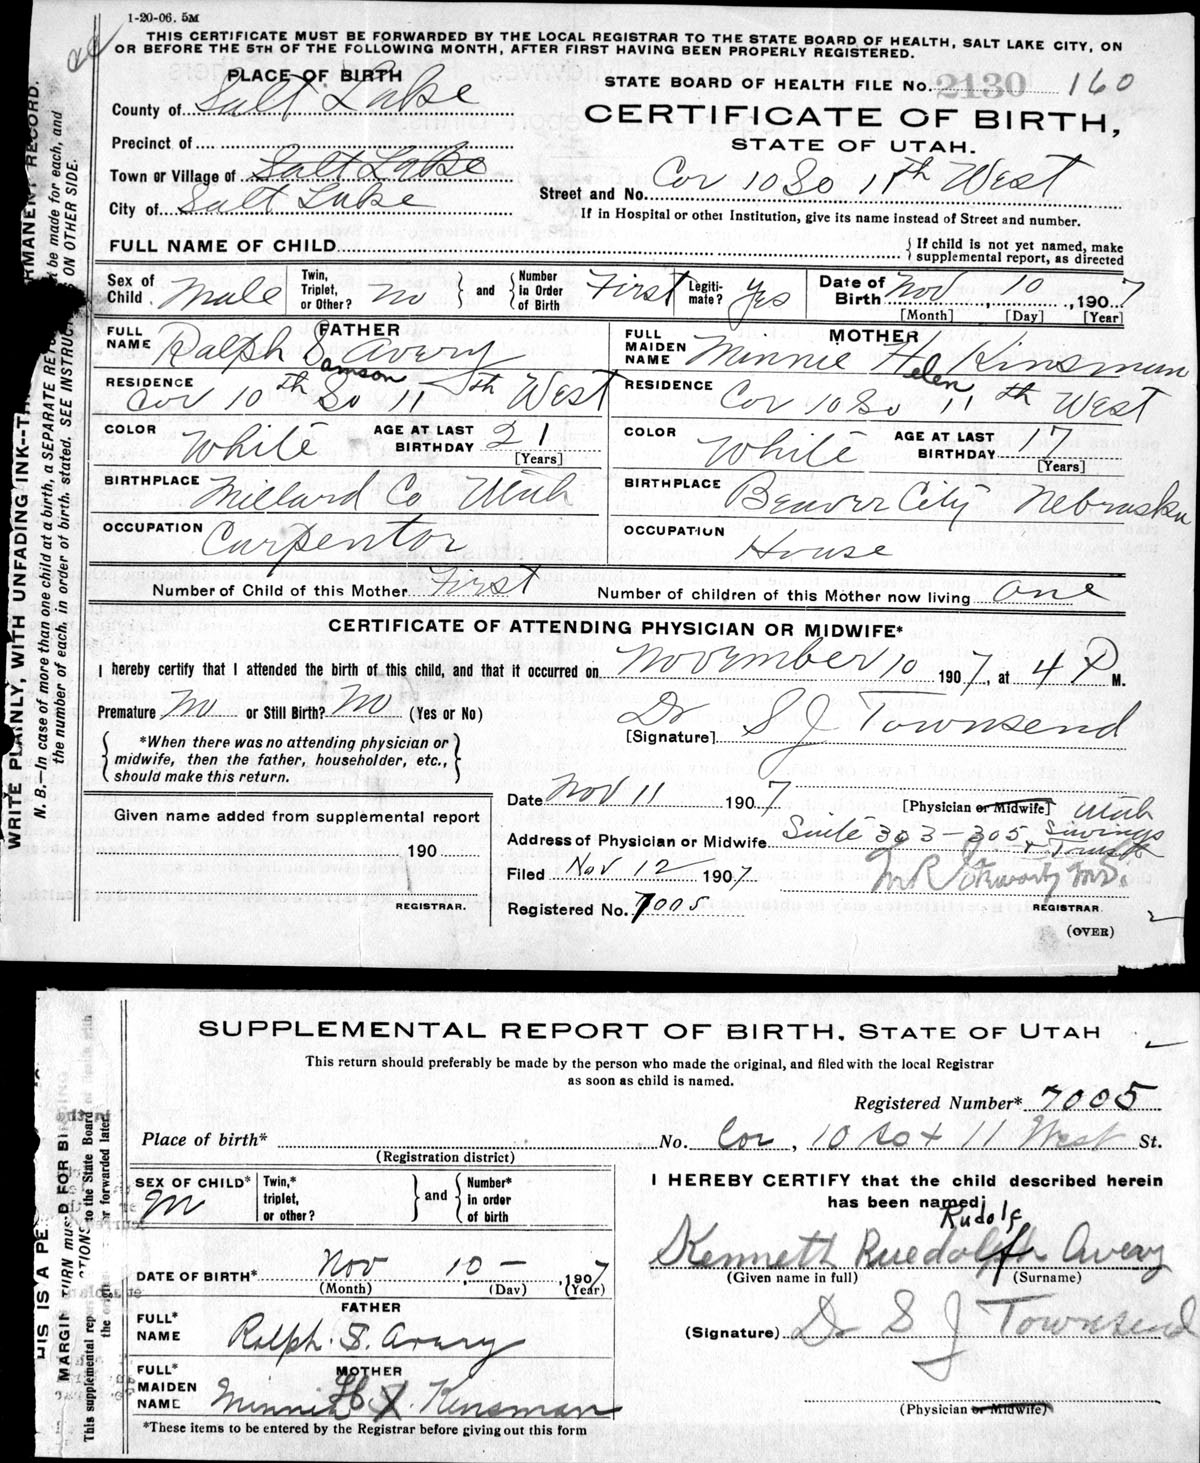 1-20-06. 5M
THIS CERTIFICATE MUST BE FORWARDED BY THE LOCAL REGISTRAR TO THE STATE BOARD OF HEALTH, SALT LAKE CITY, ON
OR BEFORE THE 5TH OF THE FOLLOWING MONTH, AFTER FIRST HAVING BEEN PROPERLY REGISTERED.
PLACE OF BIRTH
STATE BOARD OF HEALTH FILE No. 2130 160
County of Salt Lake
CERTIFICATE OF BIRTH,
STATE OF UTAH.
Precinct of
Town or Village of Salt Lake
Street and No. Cor 10 So 11th West
City of Salt Lake
If in Hospital or other Institution, give its name instead of Street and number.
FULL NAME OF CHILD { If child is not yet named, make supplemental report, as directed
Sex of Child Male Twin, Triplet, or Other? no } and { Number in Order of Birth First Legiti-mate? Yes Date of Birth Nov, 10, 1907
[Month] [Day] [Year]
FATHER
FULL NAME Ralph Samson Avery
MOTHER
FULL MAIDEN NAME Minnie Helen Kinsman
RESIDENCE Cor 10th So 11th West
RESIDENCE Cor 10 So 11th West
COLOR White AGE AT LAST BIRTHDAY 21 [Years]
COLOR White AGE AT LAST BIRTHDAY 17 [Years]
BIRTHPLACE Millard Co Utah
BIRTHPLACE Beaver City Nebraska
OCCUPATION Carpentor
OCCUPATION House
Number of Child of this Mother First Number of children of this Mother now living One
CERTIFICATE OF ATTENDING PHYSICIAN OR MIDWIFE*
I hereby certify that I attended the birth of this child, and that it occurred on November 10 1907, at 4 P M.
Premature No or Still Birth? No (Yes or No)
[Signature] Dr S J Townsend
{ *When there was no attending physician or
midwife, then the father, householder, etc.,
should make this return. }
Date Nov 11 1907
[Physician or Midwife]
Given name added from supplemental report
190
REGISTRAR.
Address of Physician or Midwife Suite 303-305 Utah Savings & Trust
Filed Nov 12 1907
M.D.
Registered No. 7005
REGISTRAR.
(OVER)
WRITE PLAINLY, WITH UNFADING INK--T
RMANENT RECORD.
N. B.—In case of more than one child at a birth, a SEPARATE RET
t be made for each, and
the number of each, in order of birth, stated. SEE INSTRUC
S ON OTHER SIDE.
SUPPLEMENTAL REPORT OF BIRTH, STATE OF UTAH
This return should preferably be made by the person who made the original, and filed with the local Registrar
as soon as child is named.
Registered Number* 7005
Place of birth* No. Cor, 10 so + 11 West St.
(Registration district)
SEX OF CHILD* M Twin,* triplet, or other? } and { Number* in order of birth
I HEREBY CERTIFY that the child described herein
has been named:
Rudolf
Kenneth Ruedolph Avery
(Given name in full) (Surname)
DATE OF BIRTH* Nov 10 -, 1907
(Month) (Day) (Year)
FATHER
FULL* NAME Ralph. S. Avery
(Signature) Dr S J Townsend
MOTHER
FULL* MAIDEN NAME Minnie H. Kinsman
(Physician or Midwife)
*These items to be entered by the Registrar before giving out this form
HIS IS A PE
MARGIN
TURN mus
D FOR BI
This supplemental repor
to the State Board
or forwarded later